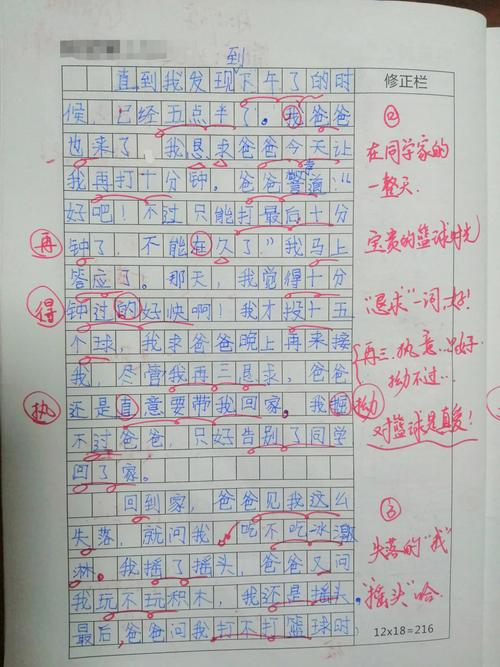 到
直到我发现下午了的时
修正栏
候，已经五点半了。我爸爸
②
也来了。我恳求爸爸今天让
在同学家的
我再打十分钟。爸爸警道：“
一整天.
意
好吧！不过只能打最后十分
宝贵的篮球时光
再
钟了，不能在久了。”我马上
答应了。那天，我觉得十分
得
钟过的好快啊！我才投十五
“恳求”一词,好!
个球，我求爸爸晚上再来接
再三.执意..只好..
我，尽管我再三恳求，爸爸
拗不过...
执
还是直意要带我回家。我
拗
不过爸爸，只好告别了同学
对篮球是真爱！
回了家。
回到家，爸爸见我这么
③
失落，就问我，吃不吃冰激
失落的“我”
淋。我摇了摇头，爸爸又问
我玩不玩积木，我还是摇头，
“摇头”哈.
最后，爸爸问我打不打篮球时
12×18=216